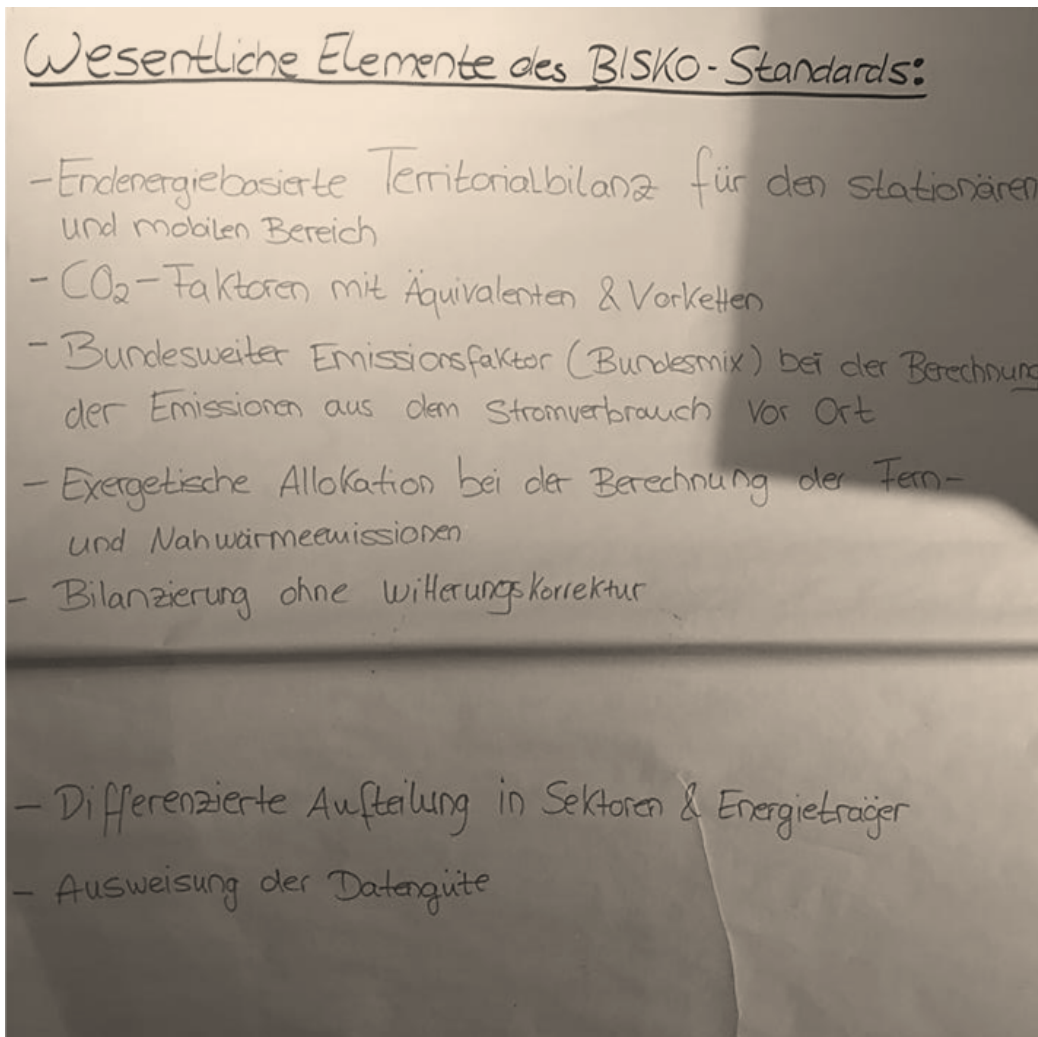 Wesentliche Elemente des BISKO-Standards:
- Endenergiebasierte Territorialbilanz für den stationären
und mobilen Bereich
- CO₂-Faktoren mit Äquivalenten & Vorketten
- Bundesweiter Emissionsfaktor (Bundesmix) bei der Berechnung
der Emissionen aus dem Stromverbrauch vor Ort
- Exergetische Allokation bei der Berechnung der Fern-
und Nahwärmeemissionen
- Bilanzierung ohne Witterungskorrektur
- Differenzierte Aufteilung in Sektoren & Energieträger
- Ausweisung der Datengüte